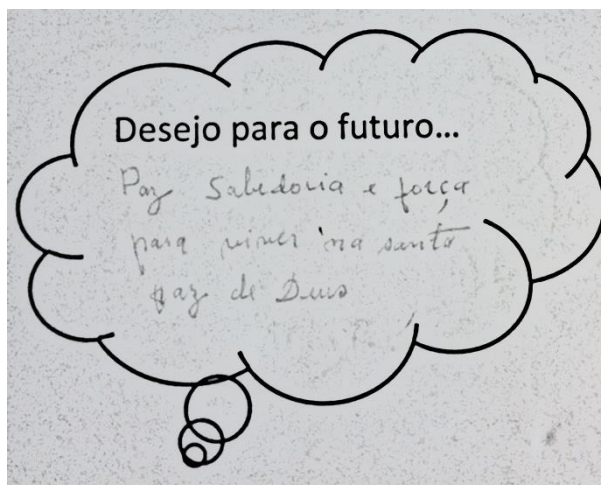 Desejo para o futuro...
Paz Sabedoria e força
para viver na santa
paz de Deus